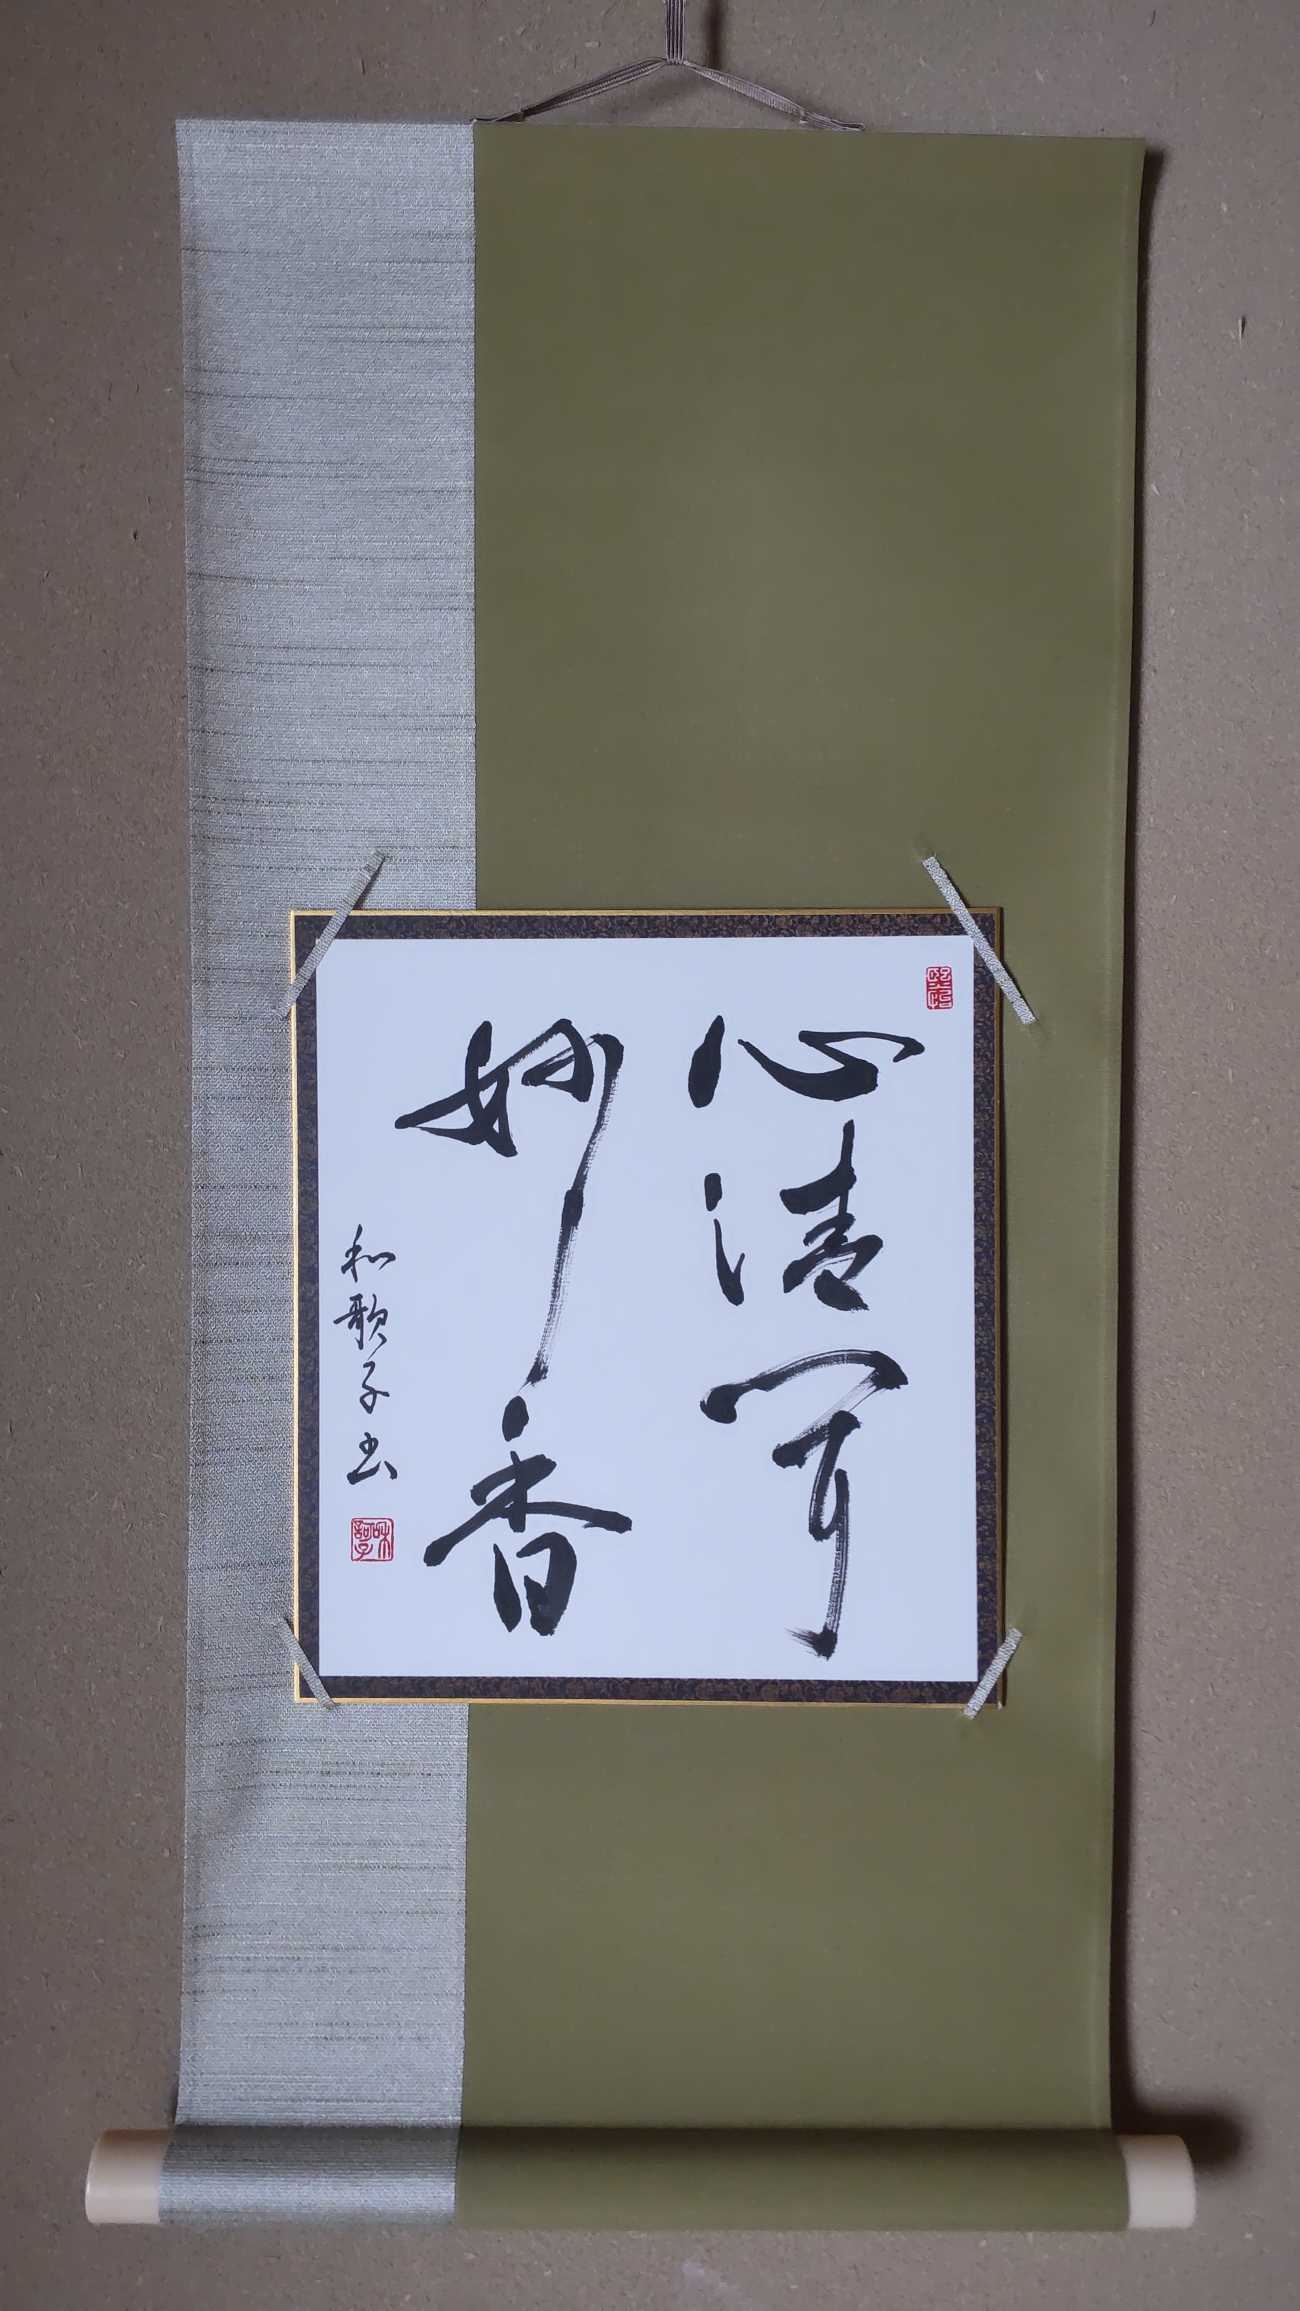 心清聞
妙香
和歌子書